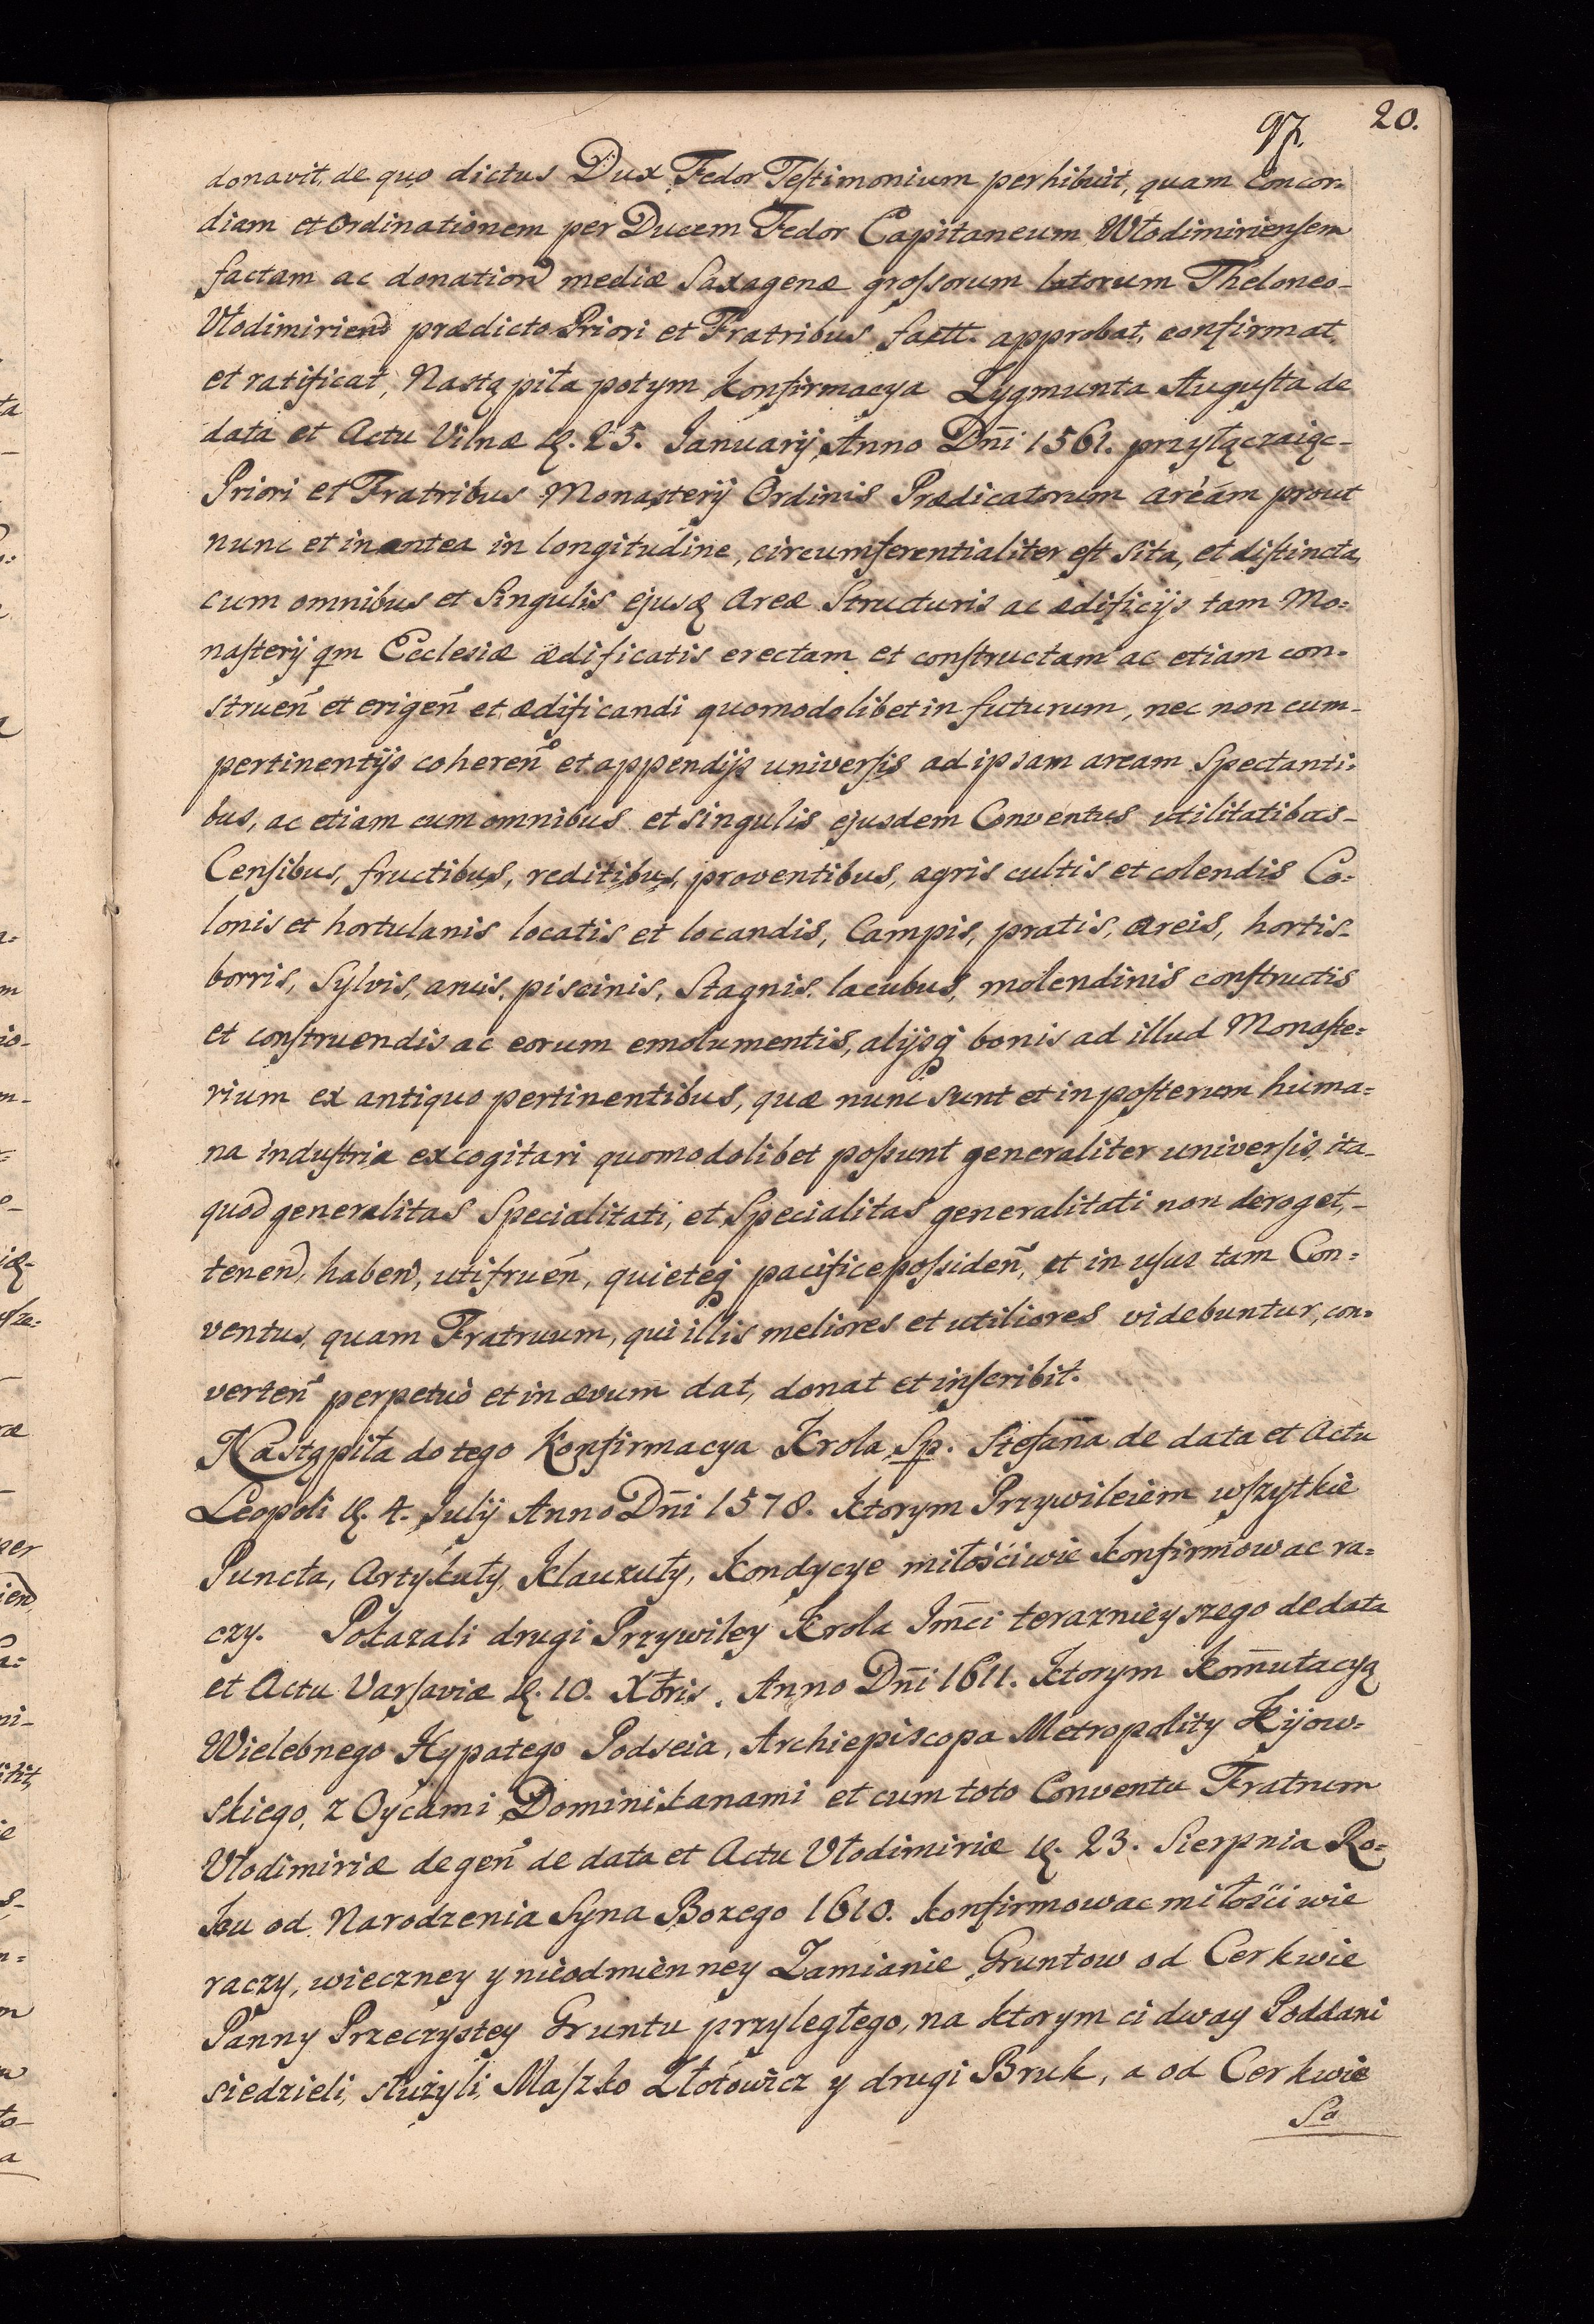 97.
20.
donavit, de quo dictus Dux Fedor Teſtimonium perhibuit, quam Concor=
diam et Ordinationem per Ducem Fedor Capitaneum Włodimirienſem
factam ac donation̄ mediæ Saxagenæ groſsorum latorum Theloneo-
Vłodimirien̄ prædicto Priori et Fratribus factt. approbat, confirmat,
et ratificat, Nastąpiła potym konfirmacya Zygmunta Auguſta de
data et Actu Vilnæ d. 25. Januarij Anno Dn̄i 1561. przyłączaiąc-
Priori et Fratribus Monasterij Ordinis Prædicatorum aream prout
nunc et in antea in longitudine, circumferentialiter eſt sita, et diſtincta,
cum omnibus et Singulis ejusq areæ Structuris ac ædificijs tam Mo=
naſterij qm Ecclesiæ ædificatis erectam et conſtructam ac etiam con=
struen̄ et erigen̄ et ædificandi quomodolibet in futurum, nec non cum-
pertinentijs coheren̄ et appendijs univerſis ad ipsam aream Spectanti=
bus, ac etiam cum omnibus et singulis ejusdem Conventus utilitatibus-
Cenſibus, fructibus, reditibus, proventibus, agris cultis et colendis Co=
lonis et hortulanis locatis et locandis, Campis, pratis, areis, hortis-
borris, Sylvis, piscinis, Stagnis, lacubus, molendinis conſtructis
et conſtruendis ac eorum emolumentis, alijsq bonis ad illud Monaſte=
rium ex antiquo pertinentibus, quæ nunc sunt et in poſterum huma=
na induſtria excogitari quomodolibet poſsunt generaliter univerſis, ita-
quod generalitas Specialitati, et Specialitas generalitati non deroget,-
tenen̄, haben̄, utifruen̄, quieteq pacifice poſsiden̄, et in uſus tam Con=
ventus, quam Fratruum, qui illis meliores et utiliores videbuntur, con=
verten̄ perpetuò et in ævum dat, donat et inſcribit.
Nastąpiła do tego Konfirmacya Krola Sp. Stefana de data et Actu
Leopoli d. 4. Julij Anno Dn̄i 1578. Ktorym Przywileiem wſzytkie
Puncta, Artykuły, Klauzuły, Kondycye miłościwie konfirmowac ra=
czy. Pokazali drugi Przywiley Krola Jm̄ci teraznieyszego de data
et Actu Varſaviæ d. 10. Xbris. Anno Dn̄i 1611. Ktorym Kom̄utacyą
Wielebnego Hypatego Podseia, Archiepiscopa Metropolity Kijow=
skiego, z Oycami Dominikanami et cum toto Conventu Fratrum
Vłodimiriæ degen̄ de data et Actu Vłodimiriæ d. 23. Sierpnia Ro=
ku od Narodzenia Syna Bozego 1610. konfirmowac miłościwie
raczy, wieczney y nieodmienney Zamianie Gruntow od Cerkwie
Panny Przeczystey Gruntu przyległego, na ktorym ci dway Poddani
siedzieli, służyli, Maſzko Złotowicz y drugi Bruk, a od Cerkwie
Sa